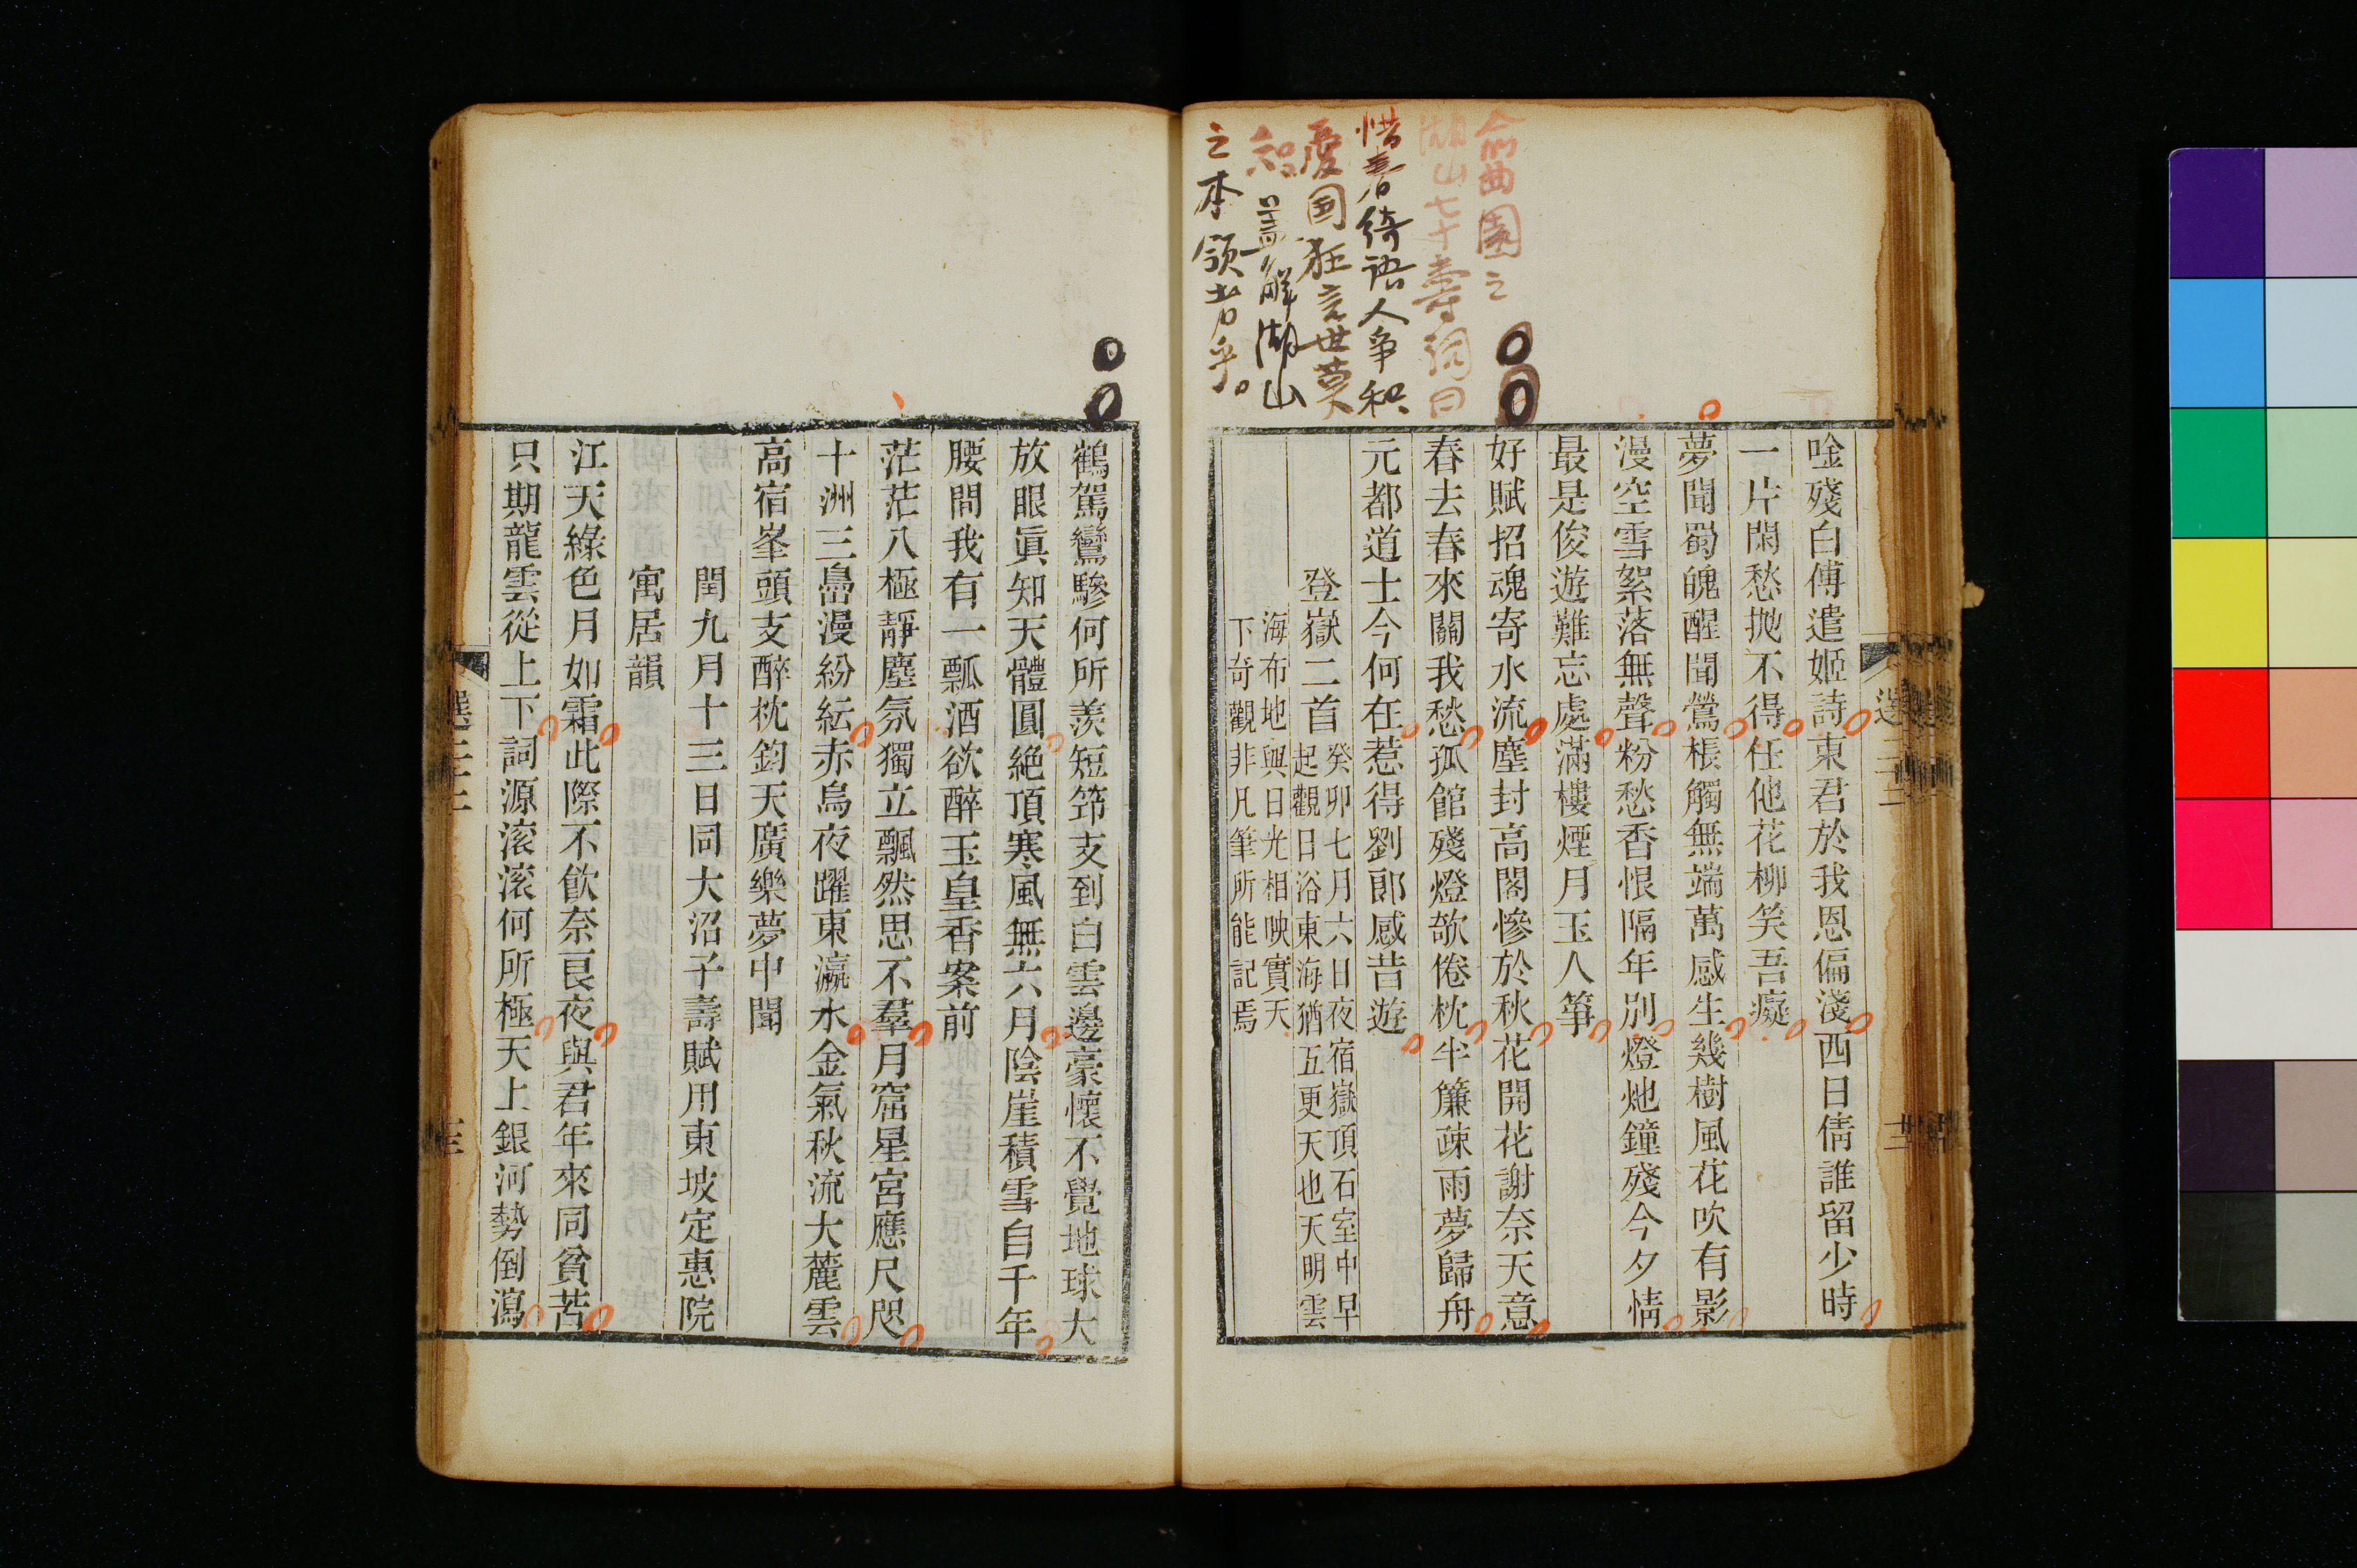 俞曲園之
湖山七十壽詞曰
惜春綺語人爭和
憂国狂言世莫
知盖解湖山
之本領者乎
唫殘白傅遣姬詩東君於我恩偏淺西日倩誰留少時
一片閑愁拋不得任他花柳笑吾癡
夢聞蜀魄醒聞鶯棖觸無端萬感生幾樹風花吹有影
漫空雪絮落無聲粉愁香恨隔年別燈灺鐘殘今夕情
最是俊遊難忘處滿樓煙月玉人箏
好賦招魂寄水流塵封高閣慘於秋花開花謝奈天意
春去春來關我愁孤館殘燈欹倦枕半簾疎雨夢歸舟
元都道士今何在惹得劉郎感昔遊
登嶽二首
癸卯七月六日夜宿嶽頂石室中早
起觀日浴東海猶五更天也天明雲
海布地與日光相映實天
下奇觀非凡筆所能記焉
選二三
鶴駕鸞驂何所羨短笻支到白雲邊豪懷不覺地球大
放眼眞知天體圓絶頂寒風無六月陰崖積雪自千年
腰間我有一瓢酒欲醉玉皇香案前
茫茫八極靜塵氛獨立飄然思不羣月窟星宮應尺咫
十洲三島漫紛紜赤烏夜躍東瀛水金氣秋流大麓雲
高宿峯頭支醉枕鈞天廣樂夢中聞
閏九月十三日同大沼子壽賦用東坡定惠院
寓居韻
江天綠色月如霜此際不飮奈良夜與君年來同貧苦
只期龍雲從上下詞源滚滚何所極天上銀河勢倒瀉